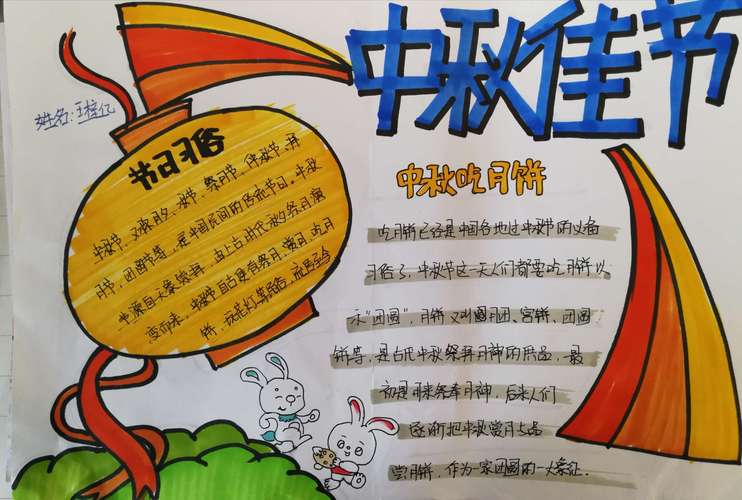 中秋佳节
姓名:王梓亿
节日习俗
中秋节,又称月夕、秋节、祭月节、仲秋节、拜
月节、团圆节等,是中国民间的传统节日。中秋
节源自天象崇拜,由上古时代秋夕祭月演
变而来。中秋节自古便有祭月、赏月、吃月
饼、玩花灯等民俗,流传至今
中秋吃月饼
吃月饼已经是中国各地过中秋节的必备
习俗了,中秋节这一天人们都要吃月饼以
示"团圆",月饼又叫月团、宫饼、团圆
饼等,是古代中秋祭拜月神的供品,最
初是用来祭奉月神,后来人们
逐渐把中秋赏月与品
尝月饼,作为一家团圆的一大象征.